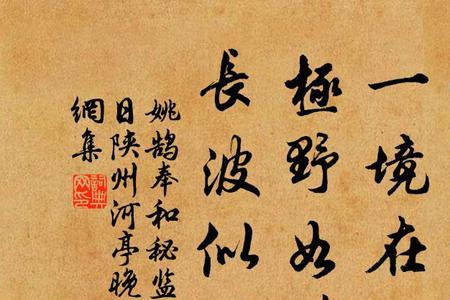 一境在
極野如
長波似
姚鵠奉和秘監
日陝州河亭晚
網集